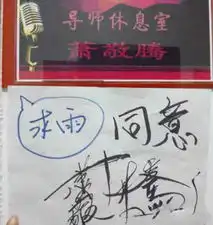 导师休息室
萧敬腾
求雨
同意
萧敬腾